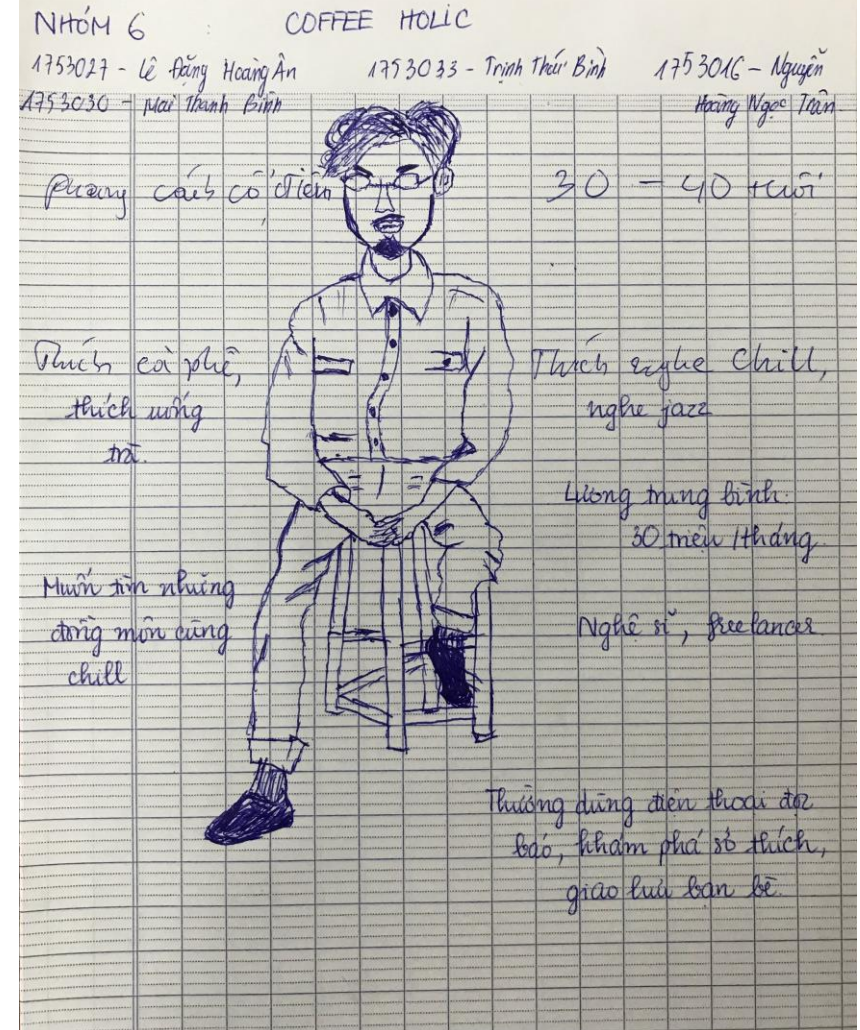 NHÓM 6 : COFFEE HOLIC
1753027 - Lê Đăng Hoàng Ân 1753033 - Trịnh Thức Bình 1753016 - Nguyễn
1753030 - Mai Thanh Bình Hoàng Ngọc Trân.
Phong cách cổ điển 30 - 40 tuổi
Thích cà phê,
thích uống
trà.
Thích nghe Chill,
nghe jazz
Lương trung bình.
30 triệu /tháng
Muốn tìm những
đồng môn cùng
chill
Nghệ sĩ, freelancer
Thường dùng điện thoại đọc
báo, khám phá sở thích,
giao lưu bạn bè.